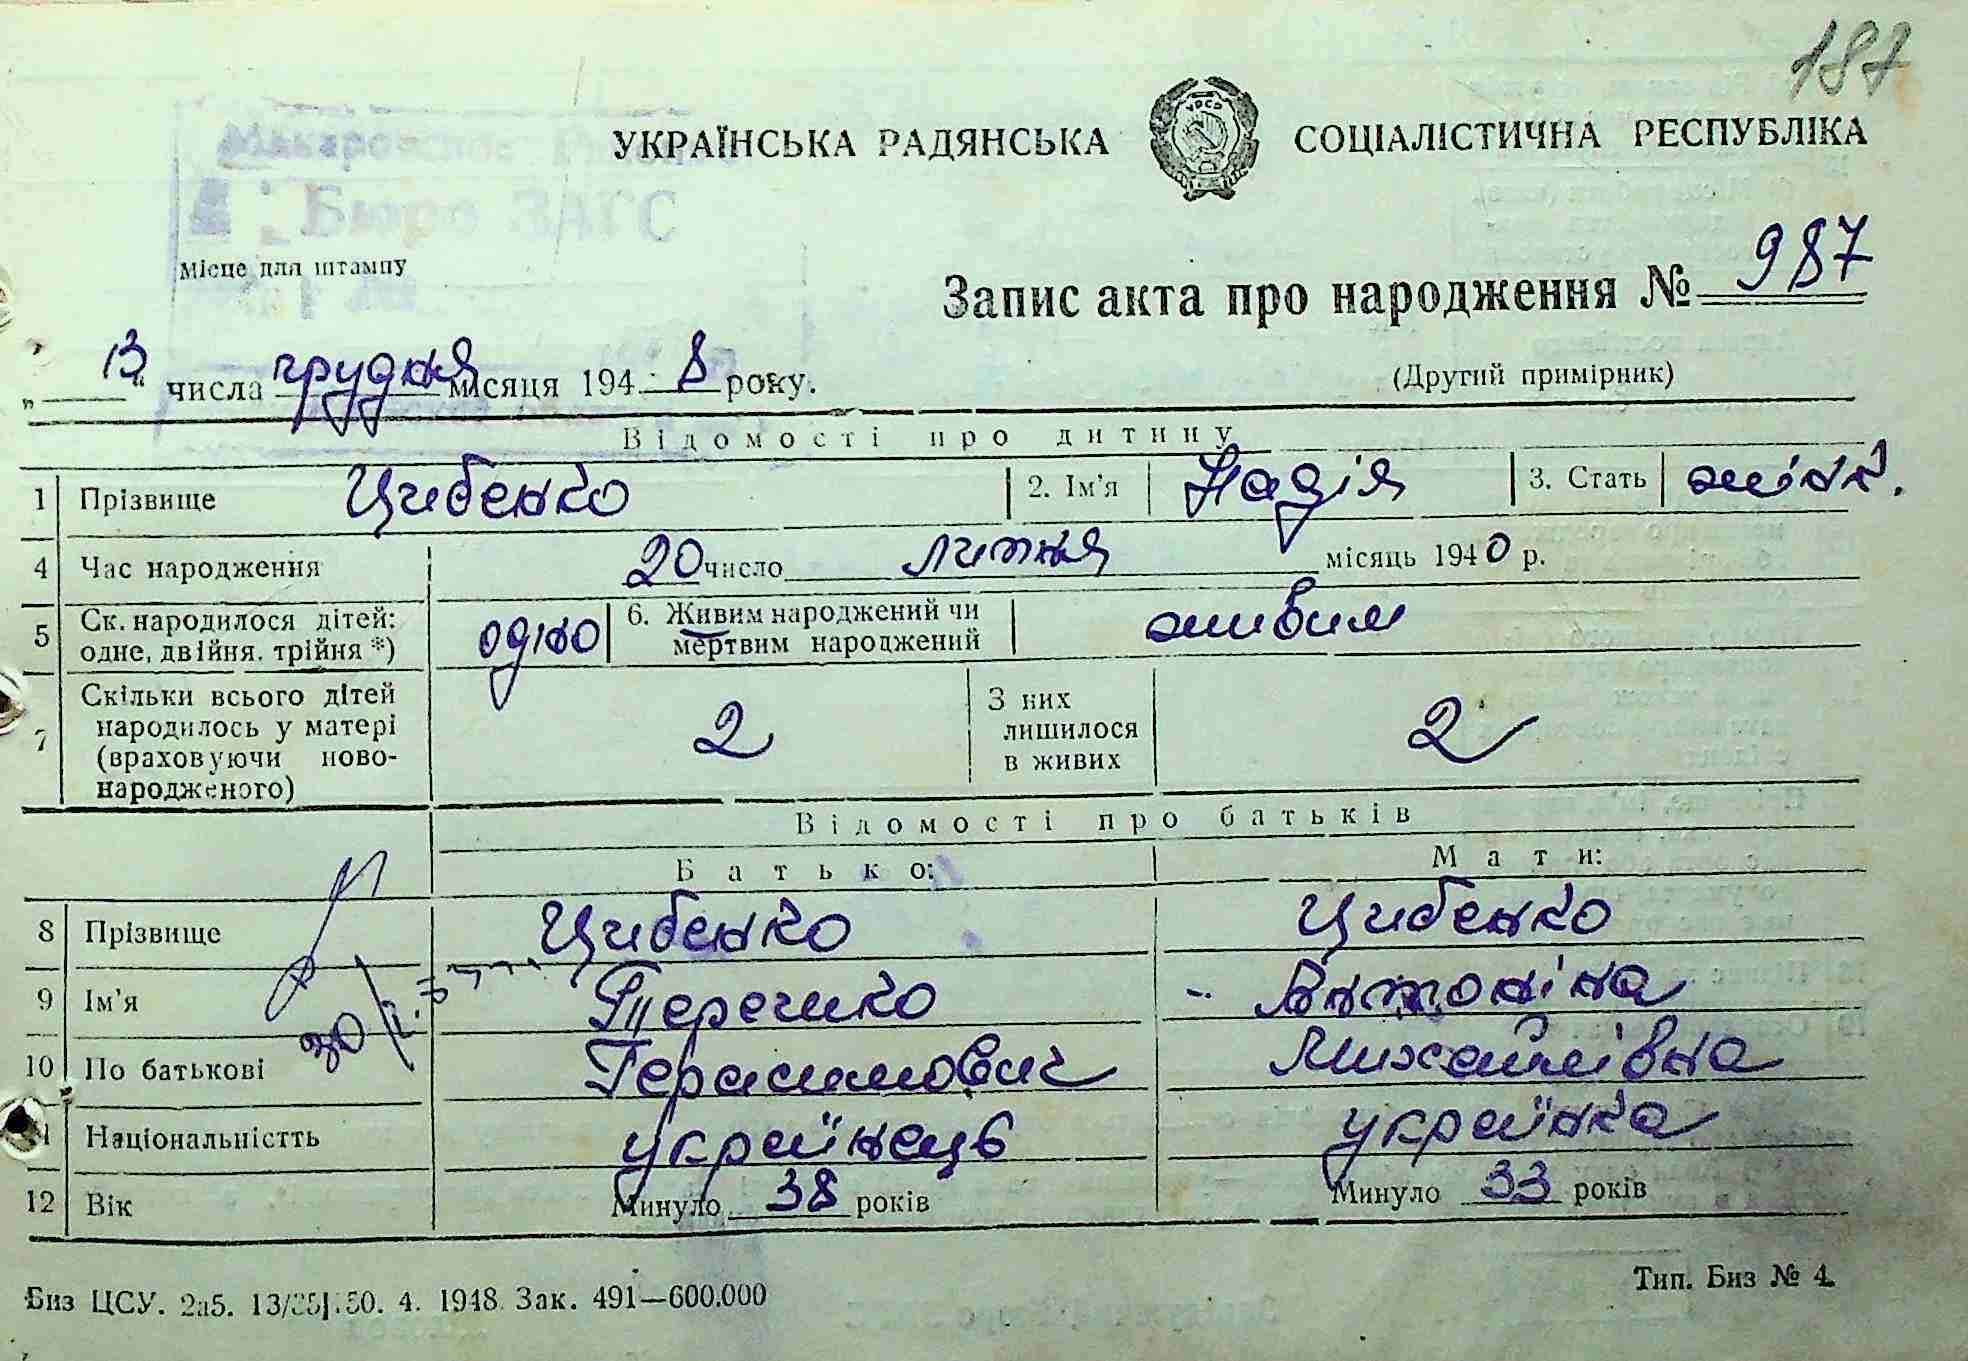 187
Бюро ЗАГС
УКРАЇНСЬКА РАДЯНСЬКА СОЦІАЛІСТИЧНА РЕСПУБЛІКА
УРСР
Місце для штампу
Запис акта про народження № 987
„ 13 “ числа грудня місяця 194 8 року.
(Другий примірник)
Відомості про дитину
1 Прізвище Цибенко 2. Ім'я Надія 3. Стать жінк.
4 Час народження 20 число липня місяць 1940 р.
5 Ск. народилося дітей: одне, двійня, трійня *) одно 6. Живим народжений чи мертвим народжений живим
7 Скільки всього дітей народилось у матері (враховуючи новонародженого) 2 З них лишилося в живих 2
Відомості про батьків
Батько: Мати:
8 Прізвище Цибенко Цибенко
9 Ім'я Терешко Антоніна
10 По батькові Герасимович Михайлівна
11 Національністть українець українка
12 Вік Минуло 38 років Минуло 33 років
Биз ЦСУ. 2а5. 13/35|.50. 4. 1948 Зак. 491—600.000
Тип. Биз № 4.